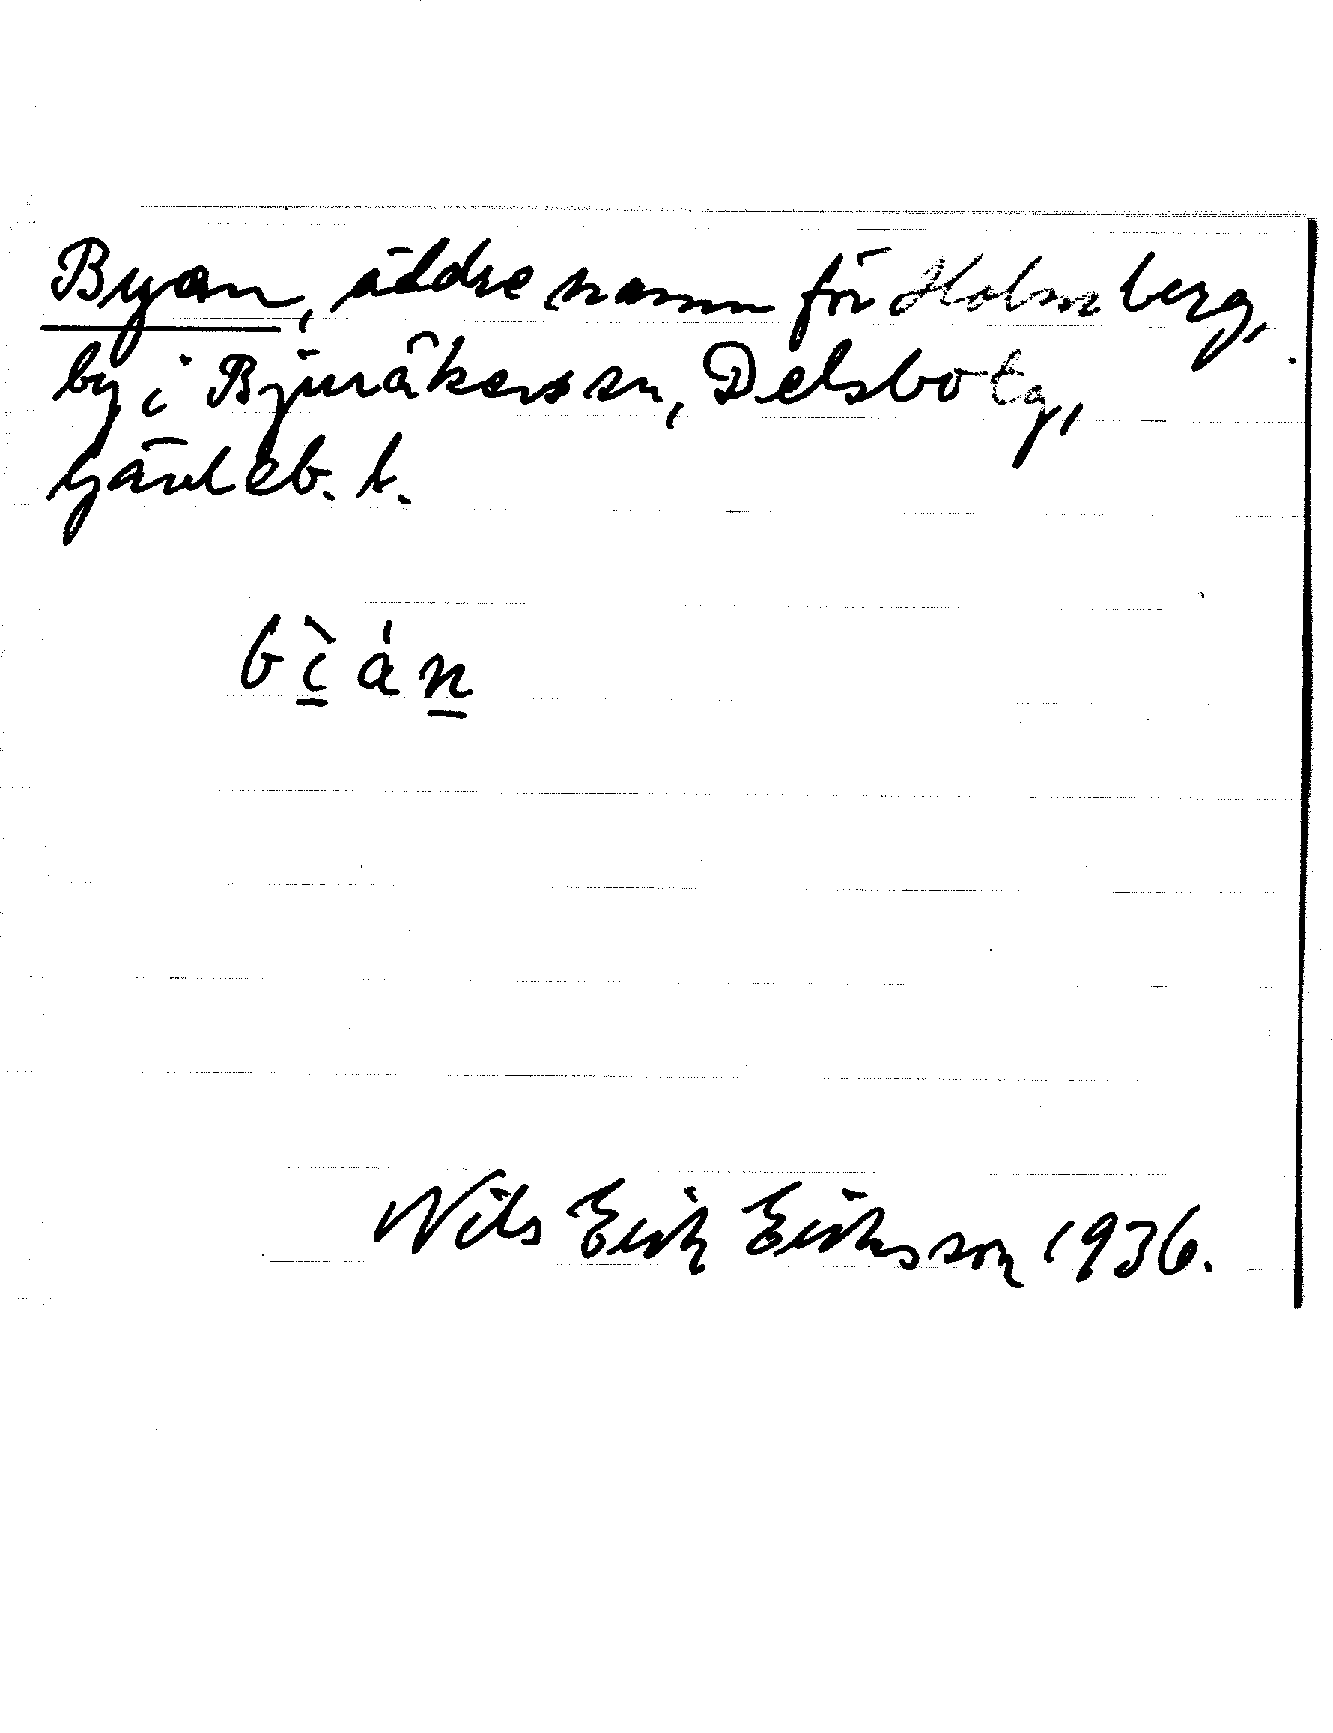 Byan, äldre namn för Holmberg,
by i Bjuråkers sn, Delsbo tg,
Gävleb. l.
bì án
Nils Erik Eriksson 1936.